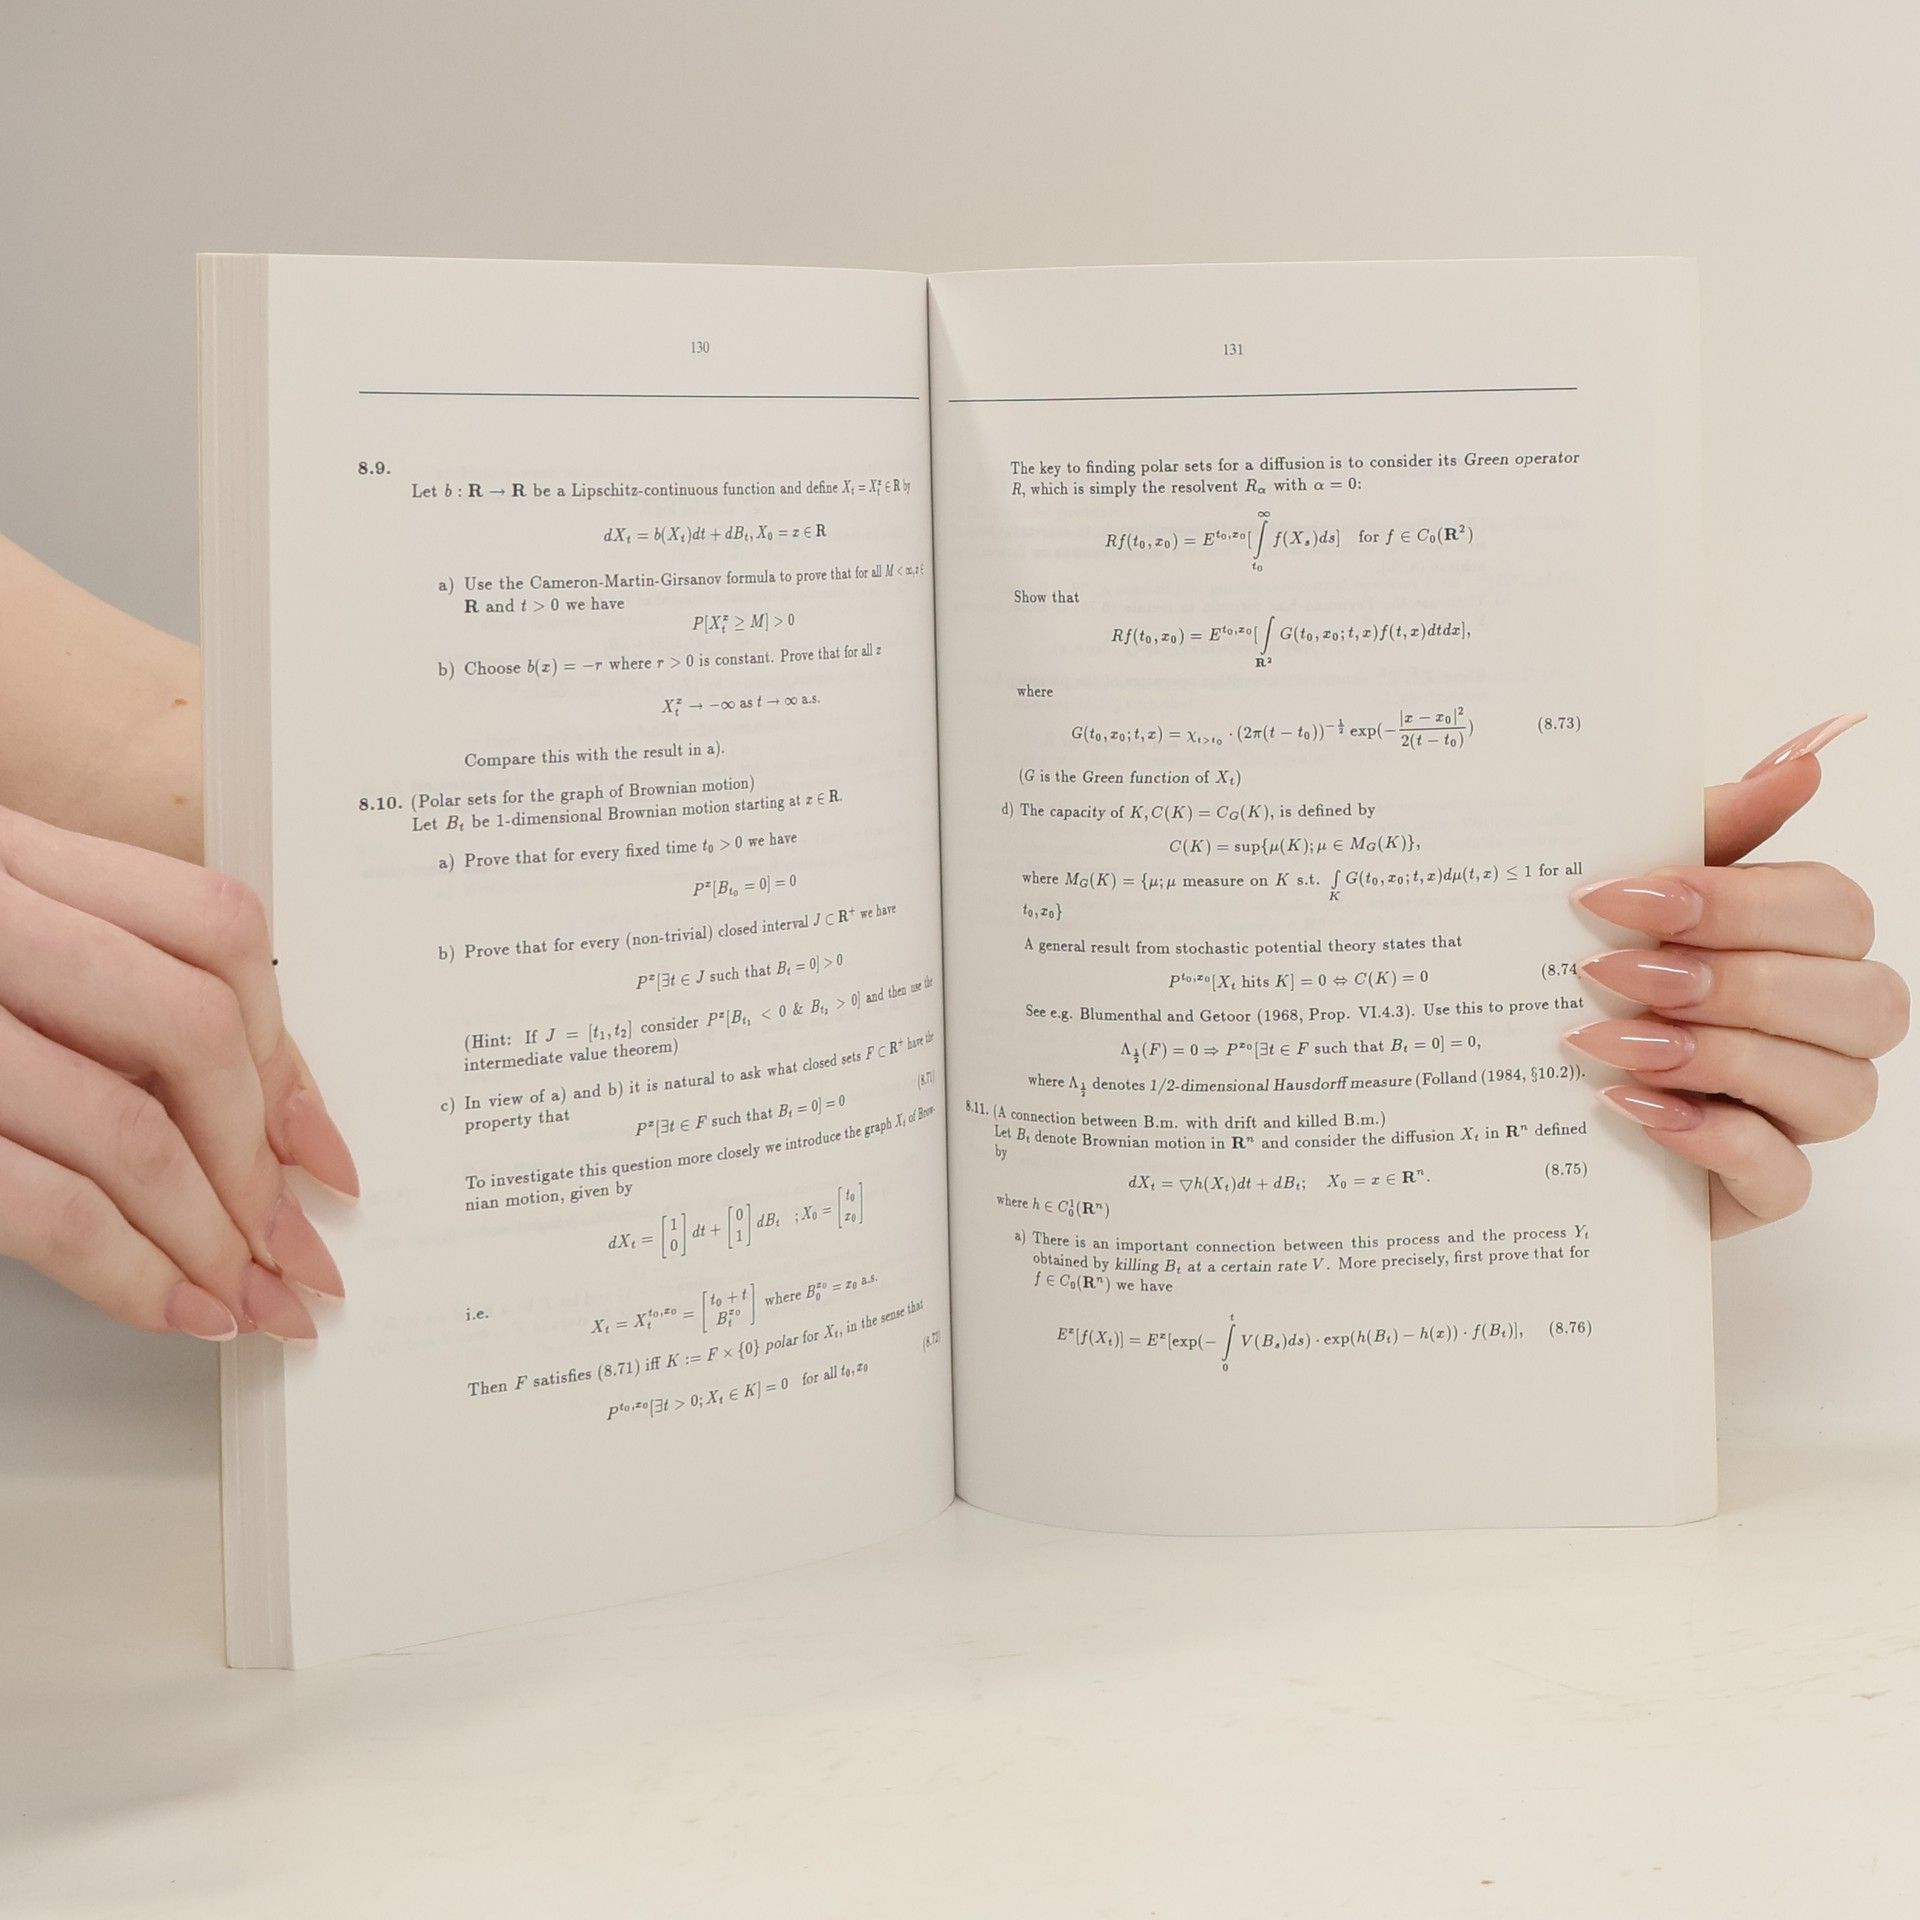 130
8.9.
Let b : R → R be a Lipschitz-continuous function and define X_t = X_t^x ∈ R by
dX_t = b(X_t)dt + dB_t, X_0 = x ∈ R
a) Use the Cameron-Martin-Girsanov formula to prove that for all M < ∞, x ∈
R and t > 0 we have
P[X_t^x ≥ M] > 0
b) Choose b(x) = −r where r > 0 is constant. Prove that for all x
X_t^x → −∞ as t → ∞ a.s.
Compare this with the result in a).
8.10. (Polar sets for the graph of Brownian motion)
Let B_t be 1-dimensional Brownian motion starting at x ∈ R.
a) Prove that for every fixed time t_0 > 0 we have
P^x[B_{t_0} = 0] = 0
b) Prove that for every (non-trivial) closed interval J ⊂ R^+ we have
P^x[∃t ∈ J such that B_t = 0] > 0
(Hint: If J = [t_1, t_2] consider P^x[B_{t_1} < 0 & B_{t_2} > 0] and then use the
intermediate value theorem)
c) In view of a) and b) it is natural to ask what closed sets F ⊂ R^+ have the
property that
P^x[∃t ∈ F such that B_t = 0] = 0 (8.71)
To investigate this question more closely we introduce the graph X_t of Brow-
nian motion, given by
dX_t = [1 0] dt + [0 1] dB_t ; X_0 = [t_0 x_0]
i.e.
X_t = X_t^{t_0,x_0} = [t_0 + t B_t^{x_0}] where B_0^{x_0} = x_0 a.s.
Then F satisfies (8.71) iff K := F × {0} polar for X_t, in the sense that
P^{t_0,x_0}[∃t > 0; X_t ∈ K] = 0 for all t_0, x_0 (8.72)
131
The key to finding polar sets for a diffusion is to consider its Green operator
R, which is simply the resolvent R_α with α = 0:
Rf(t_0, x_0) = E^{t_0,x_0}[∫_{t_0}^∞ f(X_s)ds] for f ∈ C_0(R^2)
Show that
Rf(t_0, x_0) = E^{t_0,x_0}[∫_{R^2} G(t_0, x_0; t, x)f(t, x)dtdx],
where
G(t_0, x_0; t, x) = χ_{t>t_0} · (2π(t − t_0))^{−1/2} exp(−|x − x_0|^2 / 2(t − t_0)) (8.73)
(G is the Green function of X_t)
d) The capacity of K, C(K) = C_G(K), is defined by
C(K) = sup{μ(K); μ ∈ M_G(K)},
where M_G(K) = {μ; μ measure on K s.t. ∫_K G(t_0, x_0; t, x)dμ(t, x) ≤ 1 for all
t_0, x_0}
A general result from stochastic potential theory states that
P^{t_0,x_0}[X_t hits K] = 0 ⇔ C(K) = 0 (8.74
See e.g. Blumenthal and Getoor (1968, Prop. VI.4.3). Use this to prove that
Λ_{1/2}(F) = 0 ⇒ P^{x_0}[∃t ∈ F such that B_t = 0] = 0,
where Λ_{1/2} denotes 1/2-dimensional Hausdorff measure (Folland (1984, §10.2)).
8.11. (A connection between B.m. with drift and killed B.m.)
Let B_t denote Brownian motion in R^n and consider the diffusion X_t in R^n defined
by
dX_t = ▽h(X_t)dt + dB_t; X_0 = x ∈ R^n. (8.75)
where h ∈ C_0^1(R^n)
a) There is an important connection between this process and the process Y_t
obtained by killing B_t at a certain rate V. More precisely, first prove that for
f ∈ C_0(R^n) we have
E^x[f(X_t)] = E^x[exp(−∫_0^t V(B_s)ds) · exp(h(B_t) − h(x)) · f(B_t)], (8.76)